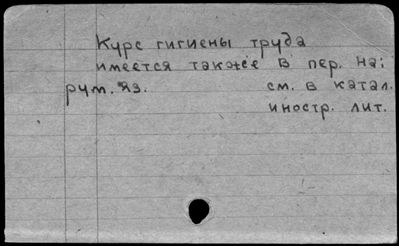 Курс гигиены труда
имеется также в пер. на:
рум. яз. см. в катал.
иностр. лит.